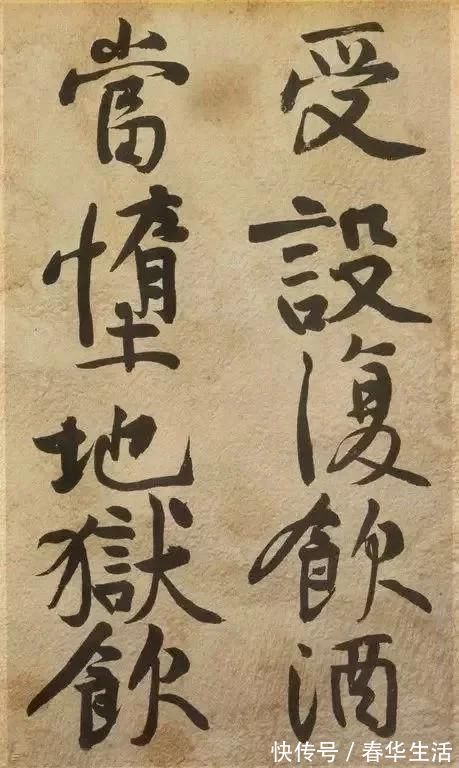 受設復飲酒
當墮地獄飲
快传号 / 春华生活